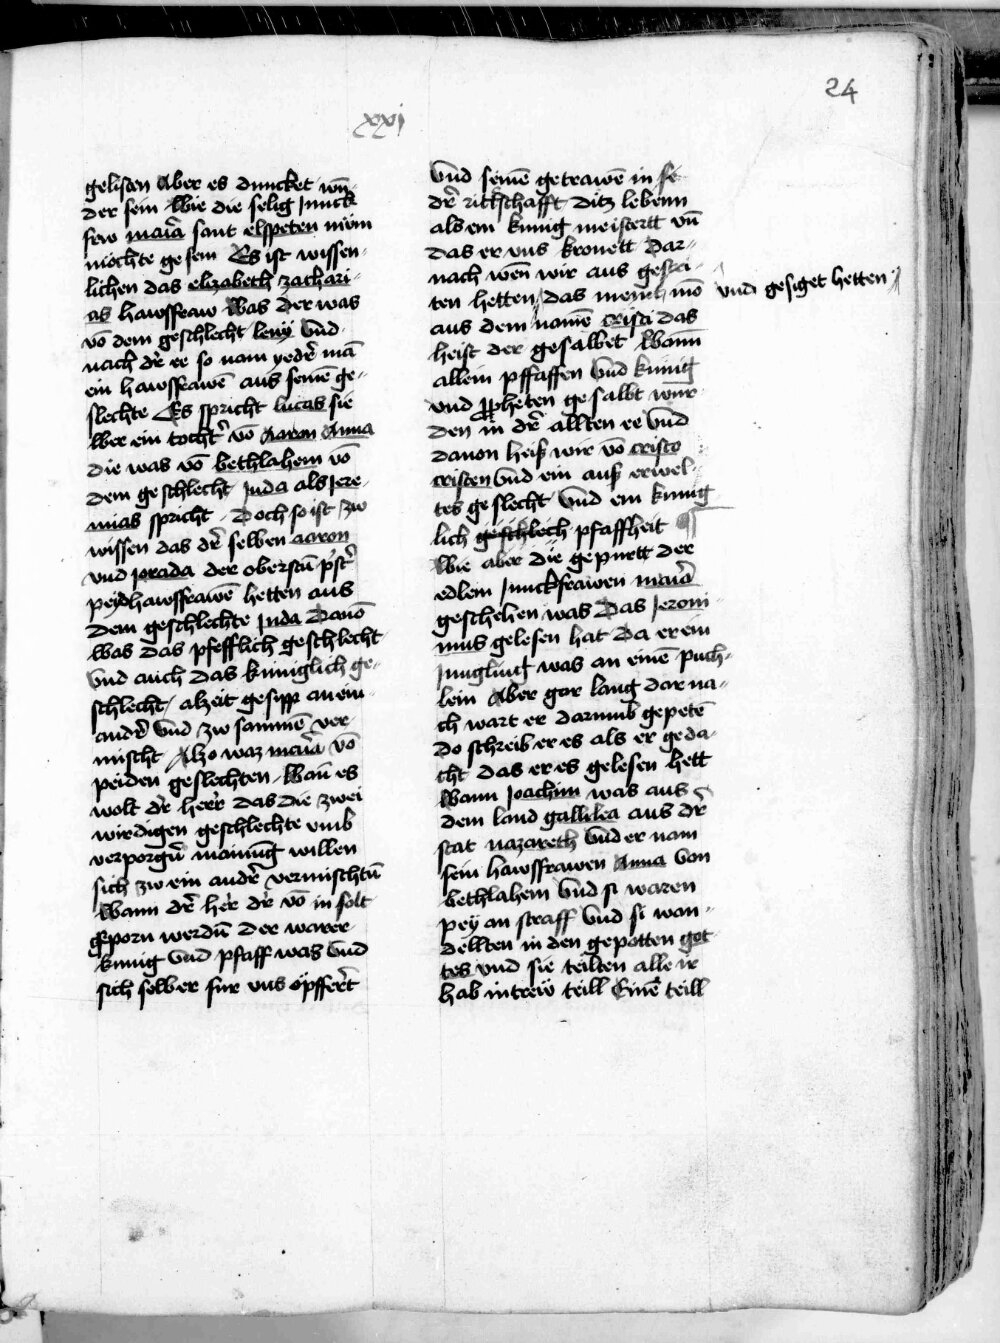 24
xxj
gelisten Aber es duncket wū-
der sein Wie die selig Junck
frw maria sant elspeten mūm
mochte gesein Es ist wissen-
lichen das elizabeth zachari-
as hawsfraw was der was
vō dem geschlecht leuy Vnd
nach dr̄ ee so nam yedr̄ mā
ein hawsfrawē aus seinē ge-
slechte Es spricht lucas sie
wer ein tochtr̄ vō Aaron Anna
die was vō bethlahem vō
dem geschlecht Juda als Jere-
mias spricht Doch so ist zw
wissen das dr̄ selben aaron
vnd Joiada der oberstn̄ pr̄str̄
peyd hawsfrawē hetten aus
dem geschlechte Juda Dauō
was das pfefflich geschlecht
Vnd auch das kuniglich ge-
schlecht alzeit gesipp an ein-
andr̄ Vnd zw sammē ver-
mischt Also waz maria vō
peiden geslechten Wan̄ es
wolt dr̄ herr das die zwei
wirdigen geschlechte vmb
verporgn̄ mainūg willen
sich zw ein andr̄ vermischtn̄
Wann dr̄ her dr̄ vō in solt
geporn werdn̄ der warer
kunig Vnd pfaff was Vnd
sich selber fur vns opffert
Vnd seinē getrawē in
dr̄ ritschafft ditz lebenn
als ein kunig meistertt vn̄
das er vns kronett Dar-
nach wen wir aus gestri-
ten hetten das meinet mā vnd gesiget hetten
aus dem namē cristi das
heist der gesalbet Wann
allein pfaffen Vnd kunig
vnd ꝓpheten gesalbt wur-
den in dr̄ allten ee Vnd
dauon heiß wir vō cristo
cristen Vnd ein auß erwel-
tes geslecht Vnd ein kunig
lich geschlech pfaffheit
Wie aber die gepurtt der
edlem Junckfrawen maria
geschehen was Das Jeroni-
mus gelesen hat Da er ein
Jungling was an einē puch-
lein Aber gar lang dar na-
ch wart er darumb gepetē
do schreib er es als er geda-
cht das er es gelesen hett
Wann Joachim was aus
dem land gallilea aus dr̄
stat nazareth Vnd er nam
sein hawsfrawen Anna von
bethlahem Vnd si waren
pey an straff Vnd si wan-
dellten in den gepotten got
tes vnd sie teilten alle ir
hab in treẅ teill Einē teill